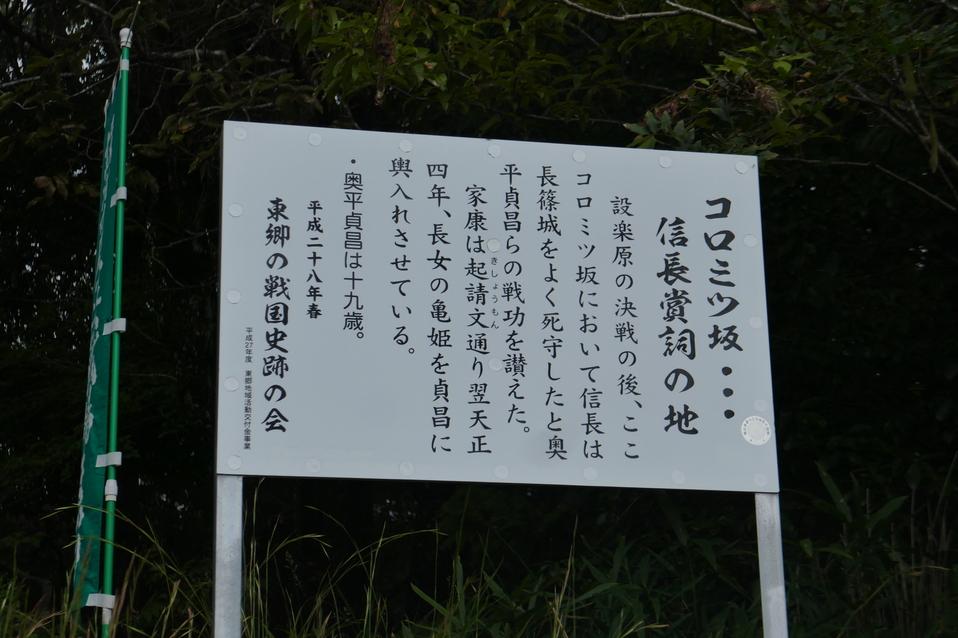 コロミツ坂・・・
信長賞詞の地
設楽原の決戦の後、ここ
コロミツ坂において信長は
長篠城をよく死守したと奥
平貞昌らの戦功を讃えた。
家康は起請文通り翌天正
きしょうもん
四年、長女の亀姫を貞昌に
輿入れさせている。
・奥平貞昌は十九歳。
平成二十八年春
東郷の戦国史跡の会
平成27年度 東郷地域活動交付金事業